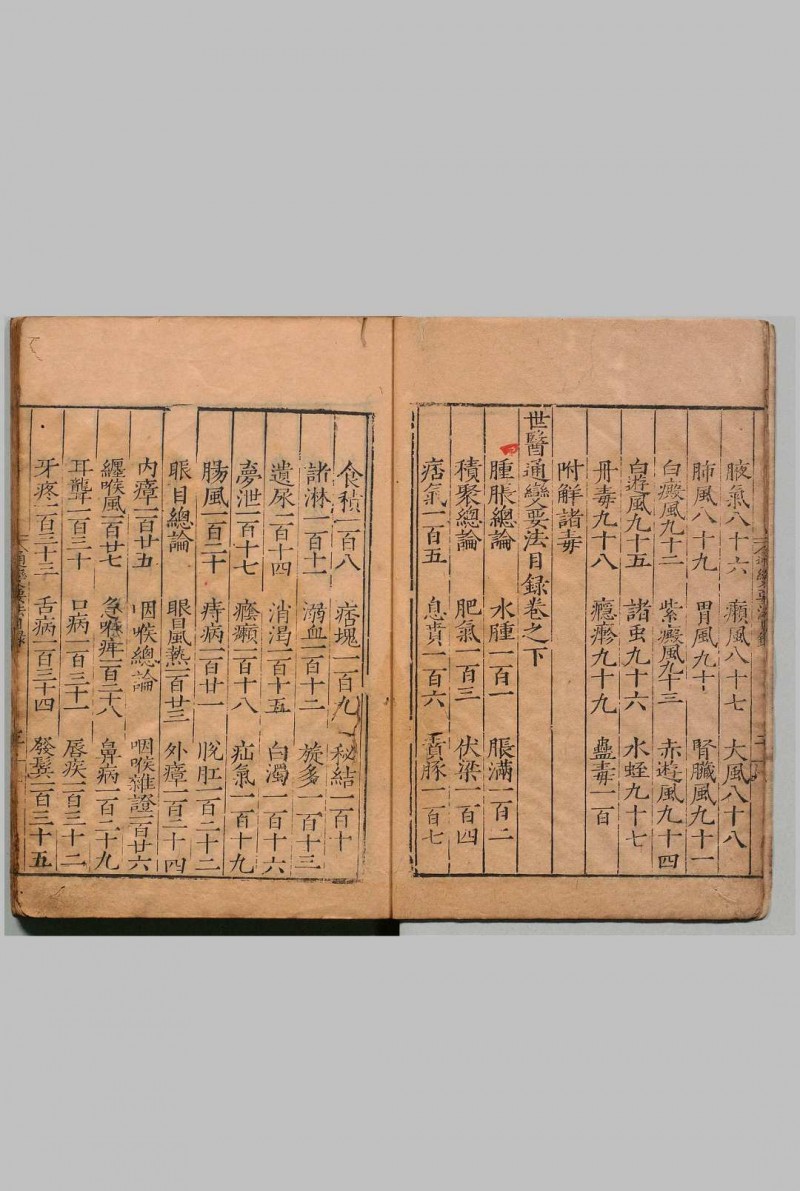 腋氣八十六 癩風八十七 大風八十八
肺風八十九 胃風九十 腎臟風九十一
白癜風九十二 紫癜風九十三 赤遊風九十四
白遊風九十五 諸虫九十六 水蛭九十七
丹毒九十八 癮疹九十九 蠱毒一百
附解諸毒
世醫通變要法目録卷之下
腫脹總論 水腫一百一 脹滿一百二
積聚總論 肥氣一百三 伏梁一百四
痞氣一百五 息賁一百六 賁豚一百七
食積一百八 痞塊一百九 秘結一百十
諸淋一百十一 溺血一百十二 旋多一百十三
遺尿一百十四 消渴一百十五 白濁一百十六
夢泄一百十七 㿗一百十八 疝氣一百十九
腸風一百二十 痔病一百廿一 脫肛一百二十二
眼目總論 眼冒熱一百廿三 外瘴一百二十四
內瘴一百廿五 咽喉總論 咽喉雜證一百廿六
纏喉風一百廿七 急喉痺一百二十八 鼻病一百二十九
耳聾一百三十 口病一百三十一 唇疾一百三十二
牙疼一百三十三 舌病一百三十四 發鬢一百三十五